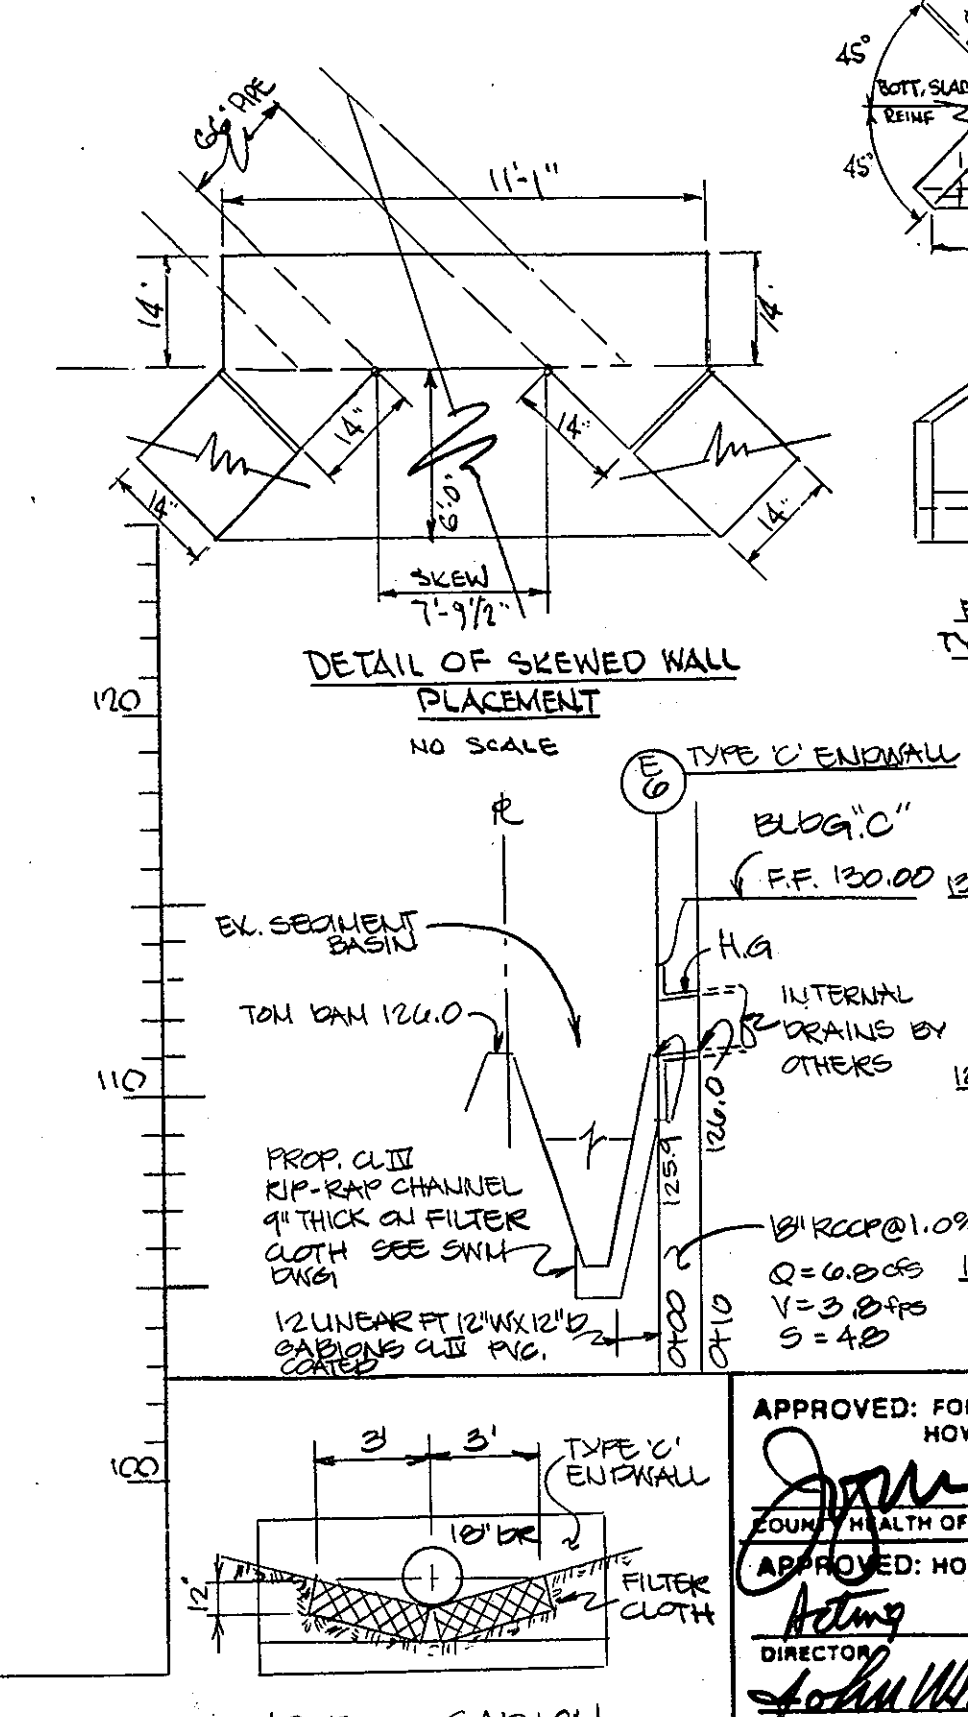 45°
BOTT. SLAB
REINF
45°
PIPE
11'-1"
14"
14"
14"
14"
14"
14"
6'0"
SKEW
7'-9 1/2"
DETAIL OF SKEWED WALL
PLACEMENT
NO SCALE
120
E
6
TYPE 'C' ENDWALL
BLDG "C"
F.F. 130.00
EX. SEDIMENT
BASIN
H.G
TOM DAM 126.0
INTERNAL
DRAINS BY
OTHERS
110
125.9
126.0
PROP. CL IV
RIP-RAP CHANNEL
9" THICK ON FILTER
CLOTH SEE SWM
DWG
18" RCCP @ 1.0%
Q = 6.8 cfs
V = 3.8 fps
S = 4.8
12 LINEAR FT 12"W X 12"D
GABIONS CL IV PVC.
COATED
0+00
0+10
100
3'
3'
TYPE 'C'
ENDWALL
18" DR
12"
FILTER
CLOTH
APPROVED: FO
HOW
COUNTY HEALTH OF
APPROVED: HO
Acting
DIRECTOR
John